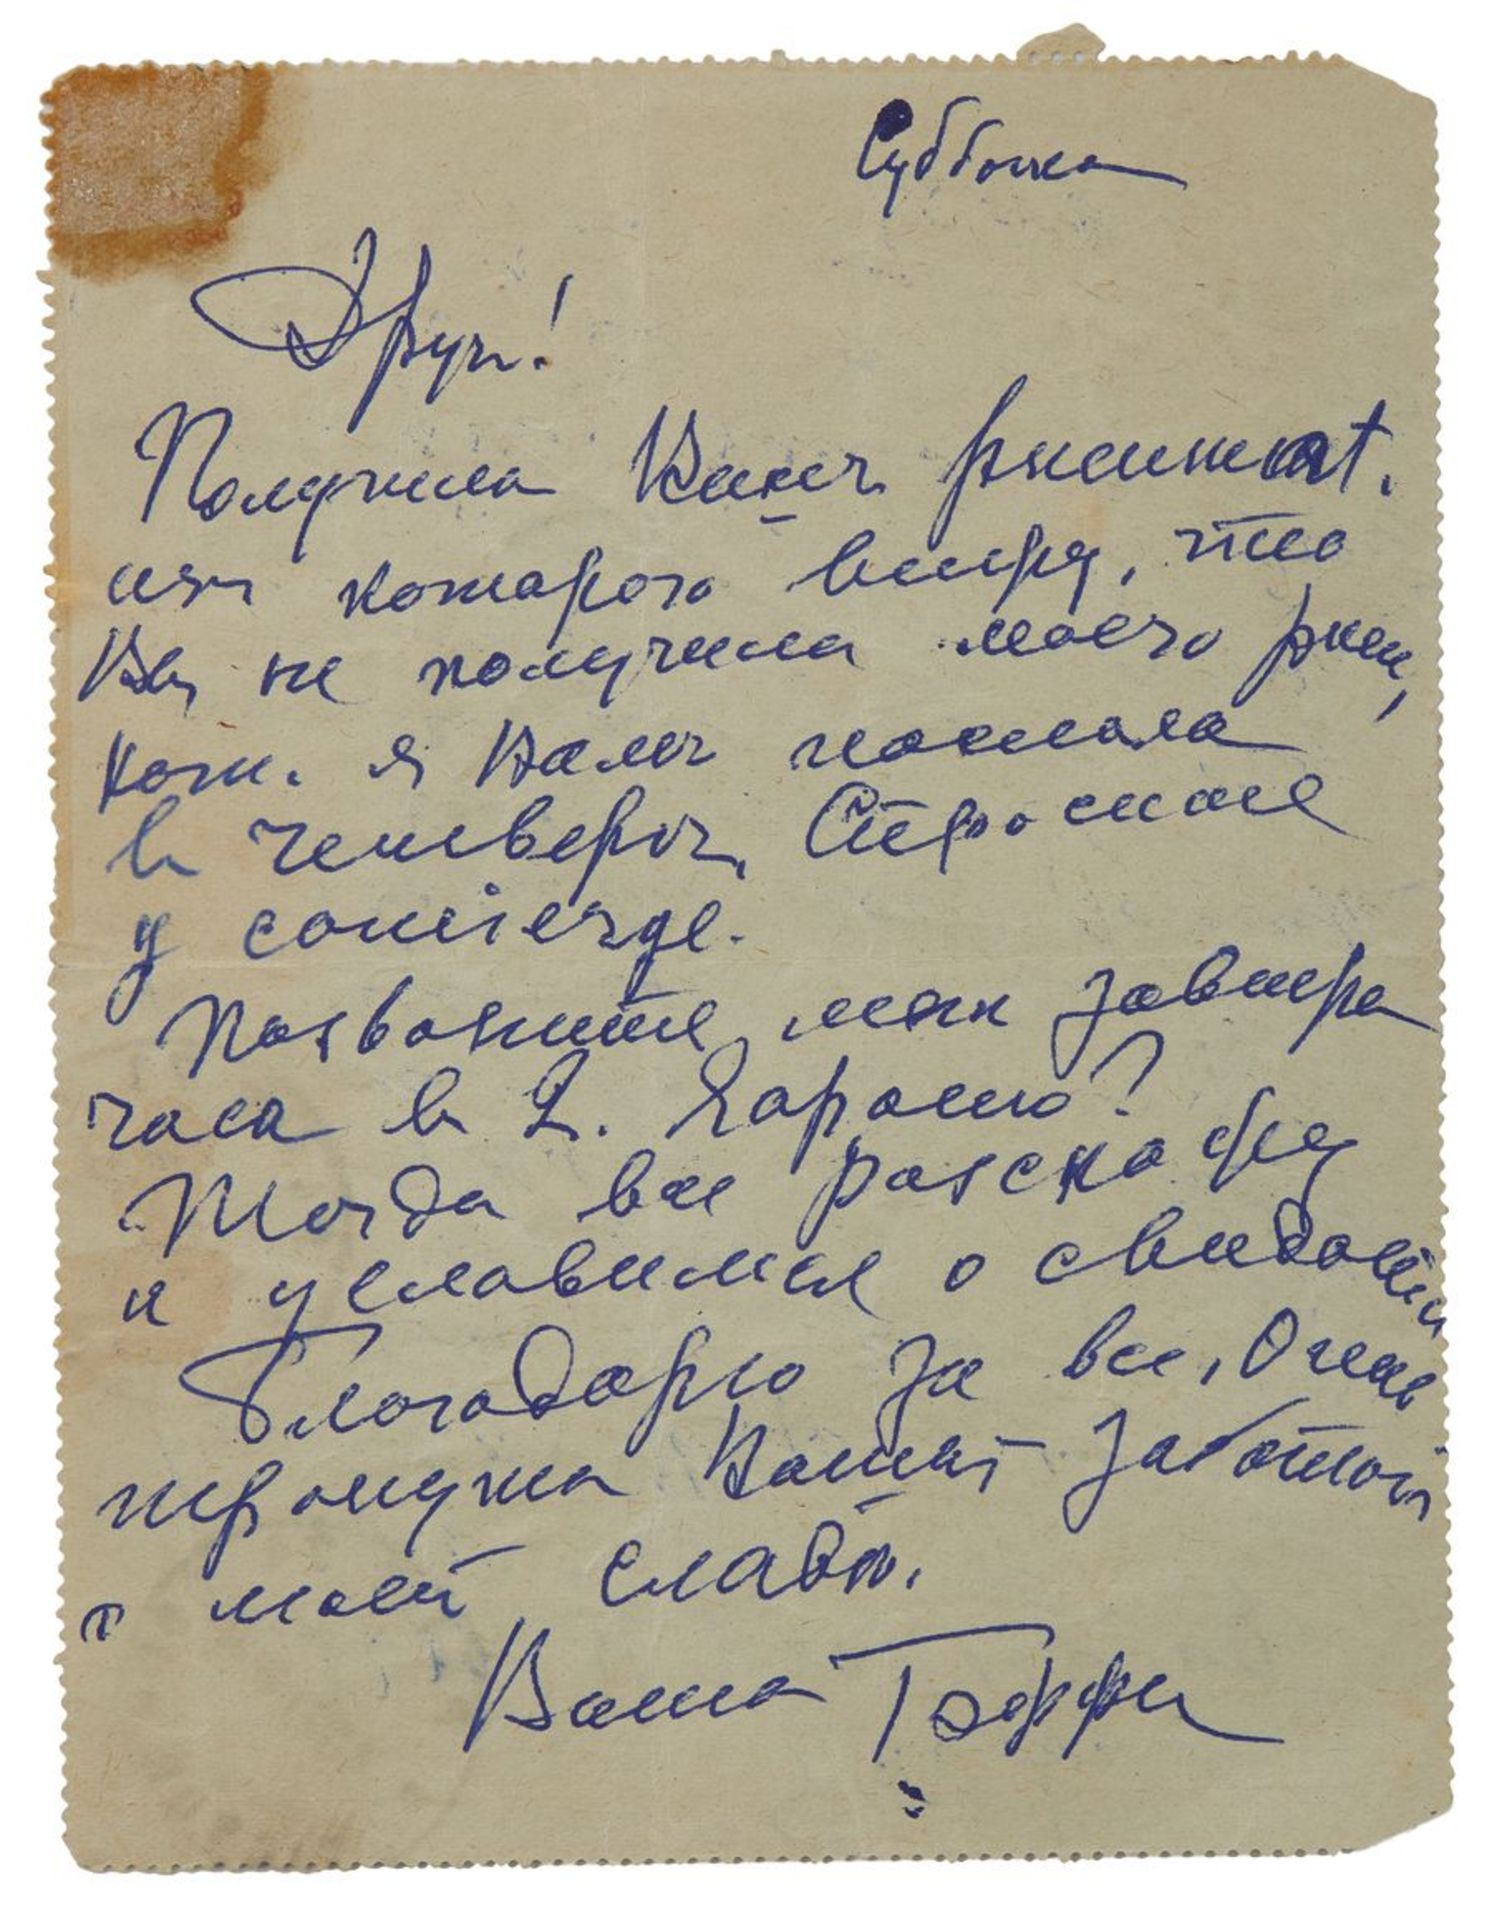 Суббота
Другъ!
Получила Вашъ pneumat.
изъ которого вижу, что
Вы не получили моего pneu,
кот. я Вамъ послала
въ четвергъ. Спросите
у concierge.
Позвоните мнѣ завтра
часа въ 2. Хорошо?
Тогда все разскажу
и условимся о свиданіи
Благодарю за все. Очень
тронута Вашей заботой
о моей славѣ.
Ваша Тэффи